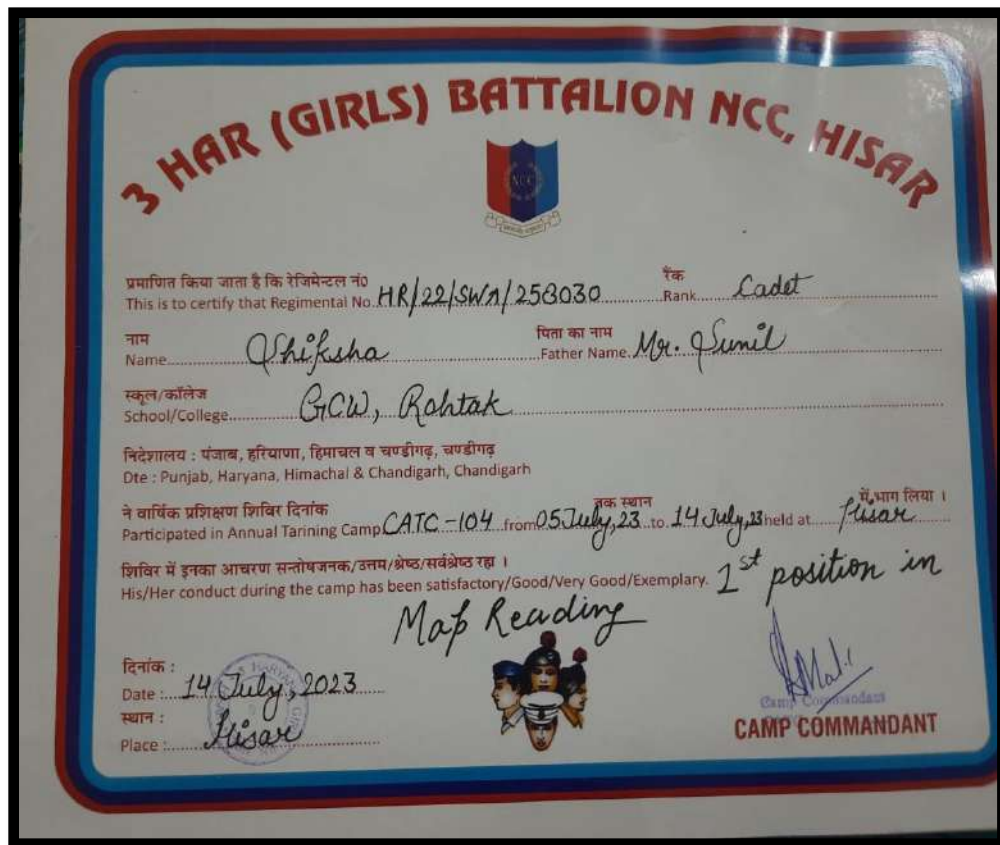 3 HAR (GIRLS) BATTALION NCC, HISAR
NCC
प्रमाणित किया जाता है कि रेजिमेन्टल नं० रैंक
This is to certify that Regimental No. HR/22/SWA/258030 Rank Cadet
नाम पिता का नाम
Name Shiksha Father Name. Mr. Sunil
स्कूल/कॉलेज
School/College GCW, Rohtak
निदेशालय : पंजाब, हरियाणा, हिमाचल व चण्डीगढ़, चण्डीगढ़
Dte : Punjab, Haryana, Himachal & Chandigarh, Chandigarh
ने वार्षिक प्रशिक्षण शिविर दिनांक तक स्थान में भाग लिया ।
Participated in Annual Tarining Camp CATC-104 from 05 July, 23 to 14 July, 23 held at Hisar
शिविर में इनका आचरण सन्तोषजनक/उत्तम/श्रेष्ठ/सर्वश्रेष्ठ रहा ।
His/Her conduct during the camp has been satisfactory/Good/Very Good/Exemplary. 1st position in
Map Reading
दिनांक :
Date : 14 July, 2023
स्थान :
Place : Hisar
Camp Commandant
CAMP COMMANDANT